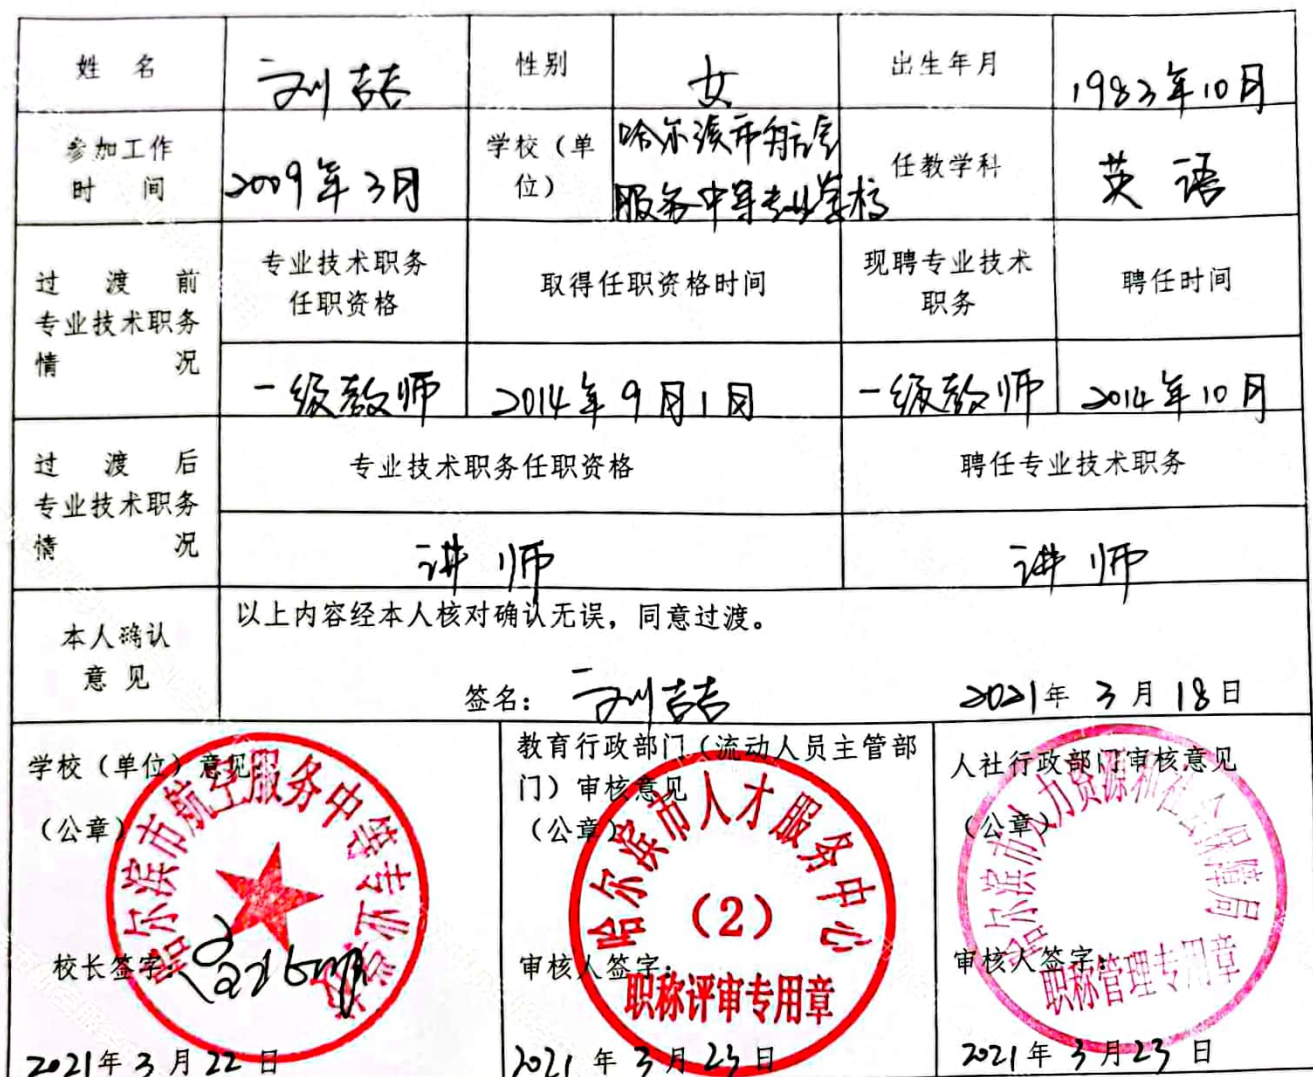 姓 名
刘喆
性别
女
出生年月
1983年10月
参加工作
时 间
2009年3月
学校（单
位）
哈尔滨市航空
服务中等专业学校
任教学科
英语
过 渡 前
专业技术职务
情 况
专业技术职务
任职资格
取得任职资格时间
现聘专业技术
职务
聘任时间
一级教师
2014年9月1日
一级教师
2014年10月
过 渡 后
专业技术职务
情 况
专业技术职务任职资格
聘任专业技术职务
讲师
讲师
本人确认
意 见
以上内容经本人核对确认无误，同意过渡。
签名：刘喆 2021年3月18日
学校（单位）意见
（公章）
哈尔滨市航空服务中等专业学校
校长签字
2021年3月22日
教育行政部门（流动人员主管部
门）审核意见
（公章）
哈尔滨市人才服务中心
（2）
审核人签字：
职称评审专用章
2021年3月23日
人社行政部门审核意见
（公章）
哈尔滨市人力资源和社会保障局
审核人签字：
职称管理专用章
2021年3月23日